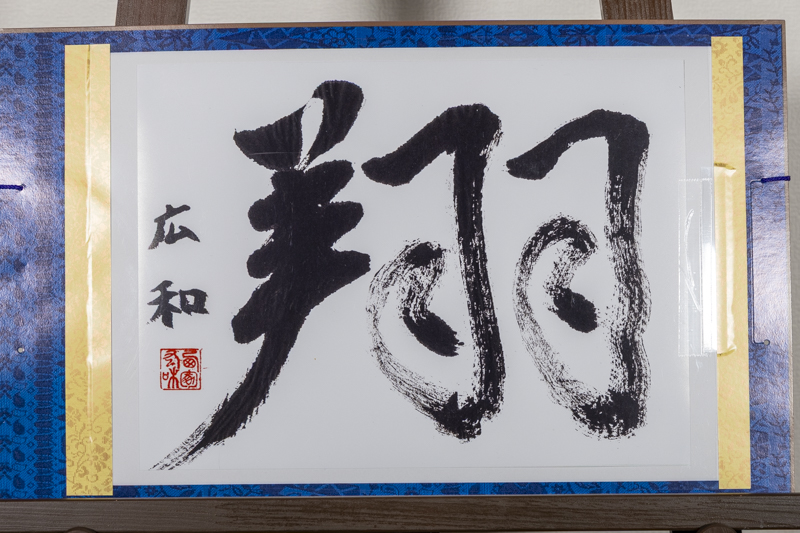 翔
広和